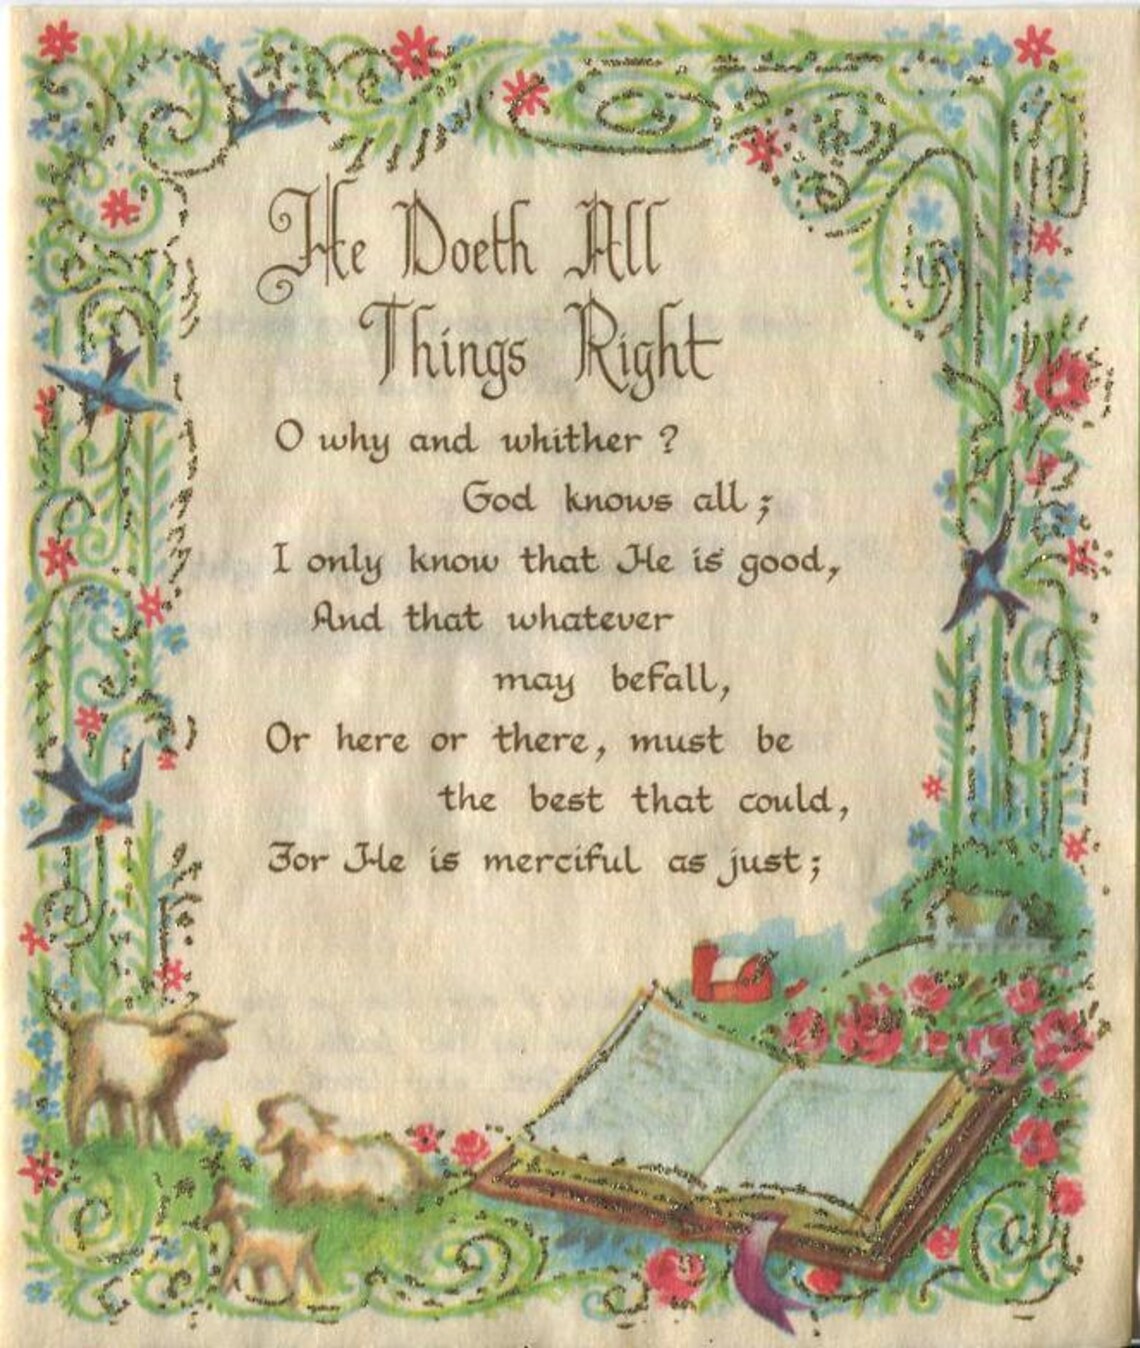 He Doeth All
Things Right
O why and whither ?
God knows all ;
I only know that He is good,
And that whatever
may befall,
Or here or there, must be
the best that could,
For He is merciful as just ;